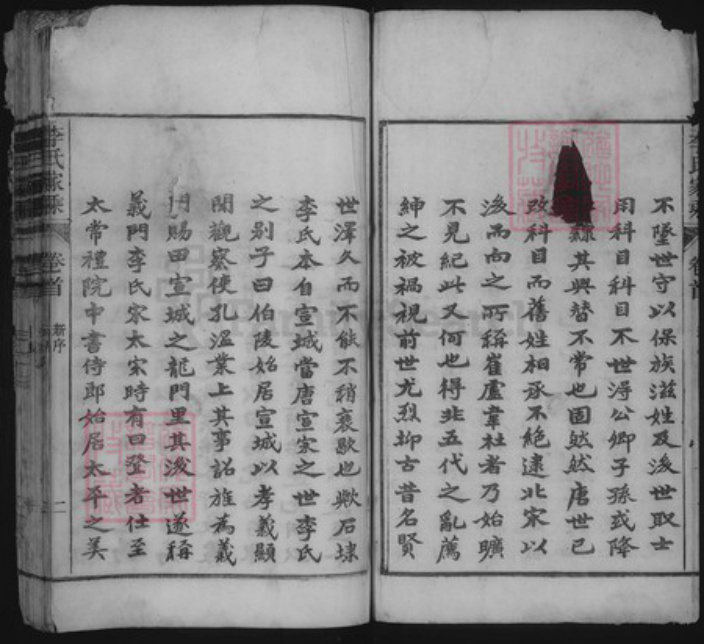 不墜世守以保族滋姓及後世取士
用科目科目不世得公卿子孫或降
隸其興替不常也固然然唐世已
改科目而舊姓相承不絕逮北宋以
後而向之所稱崔盧韋杜者乃始曠
不見紀此又何也得非五代之亂薦
紳之被禍視前世尤烈抑古昔名賢
世澤久而不能不稍衰歇也歟石埭
李氏本自宣城當唐宣宗之世李氏
之別子曰伯陵始居宣城以孝義顯
聞觀察使孔溫業上其事詔旌為義
門賜田宣城之龍門里其後世遂稱
義門李氏宋太宗時有曰登者仕至
太常禮院中書侍郎始居太平之美
李氏家乘
卷首
新序
二